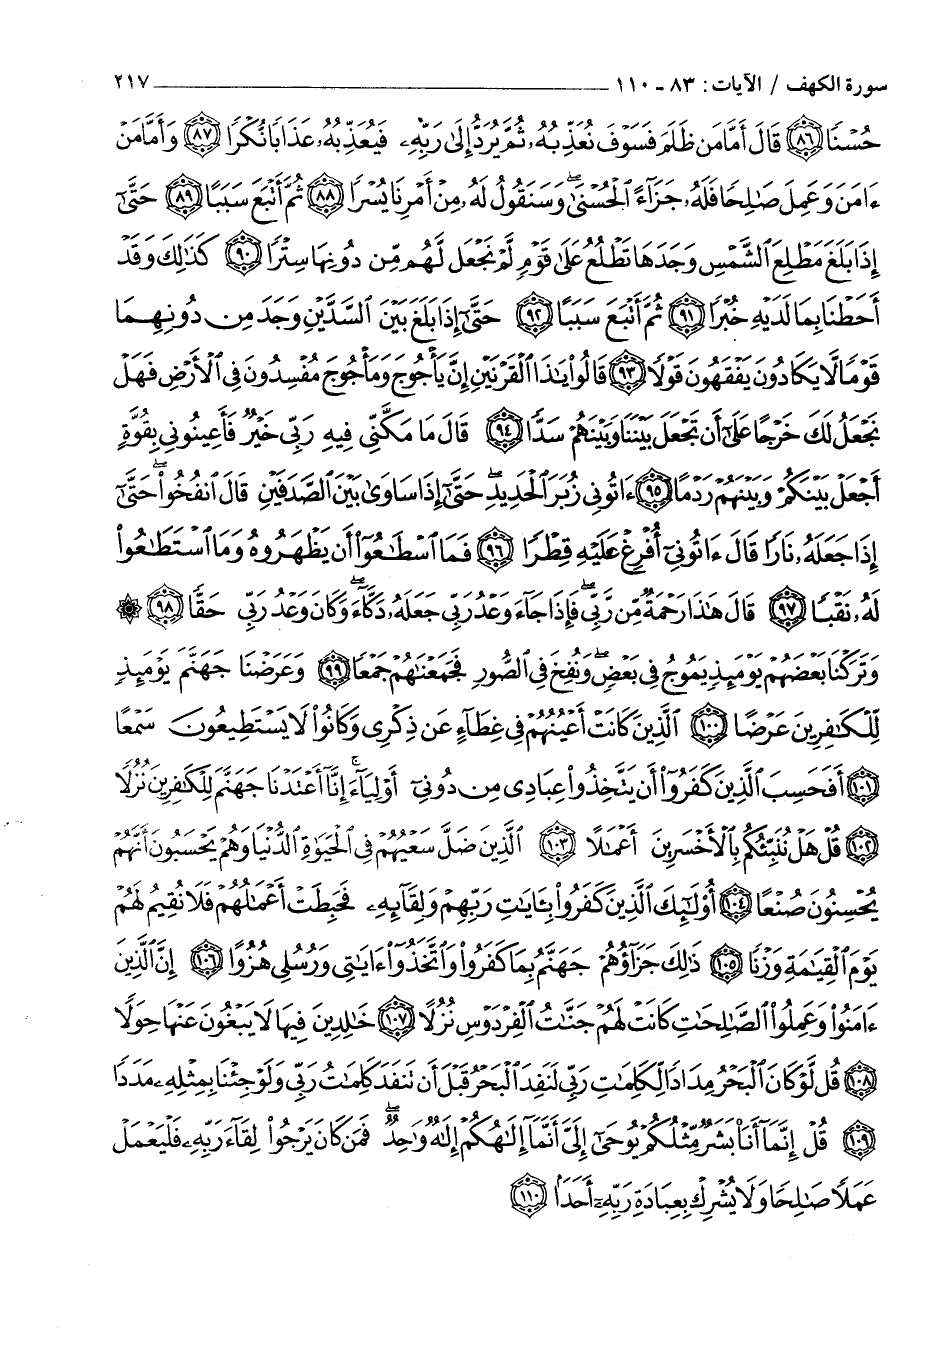 سورة الكهف / الآيات: ٨٣ - ١١٠ ٢١٧
حُسْنًا ﴿٨٦﴾ قَالَ أَمَّا مَن ظَلَمَ فَسَوْفَ نُعَذِّبُهُۥ ثُمَّ يُرَدُّ إِلَىٰ رَبِّهِۦ فَيُعَذِّبُهُۥ عَذَابًا نُّكْرًا ﴿٨٧﴾ وَأَمَّا مَنْ
ءَامَنَ وَعَمِلَ صَـٰلِحًا فَلَهُۥ جَزَآءً ٱلْحُسْنَىٰ ۖ وَسَنَقُولُ لَهُۥ مِنْ أَمْرِنَا يُسْرًا ﴿٨٨﴾ ثُمَّ أَتْبَعَ سَبَبًا ﴿٨٩﴾ حَتَّىٰٓ
إِذَا بَلَغَ مَطْلِعَ ٱلشَّمْسِ وَجَدَهَا تَطْلُعُ عَلَىٰ قَوْمٍ لَّمْ نَجْعَل لَّهُم مِّن دُونِهَا سِتْرًا ﴿٩٠﴾ كَذَٰلِكَ وَقَدْ
أَحَطْنَا بِمَا لَدَيْهِ خُبْرًا ﴿٩١﴾ ثُمَّ أَتْبَعَ سَبَبًا ﴿٩٢﴾ حَتَّىٰٓ إِذَا بَلَغَ بَيْنَ ٱلسَّدَّيْنِ وَجَدَ مِن دُونِهِمَا
قَوْمًا لَّا يَكَادُونَ يَفْقَهُونَ قَوْلًا ﴿٩٣﴾ قَالُوا۟ يَـٰذَا ٱلْقَرْنَيْنِ إِنَّ يَأْجُوجَ وَمَأْجُوجَ مُفْسِدُونَ فِى ٱلْأَرْضِ فَهَلْ
نَجْعَلُ لَكَ خَرْجًا عَلَىٰٓ أَن تَجْعَلَ بَيْنَنَا وَبَيْنَهُمْ سَدًّا ﴿٩٤﴾ قَالَ مَا مَكَّنِّى فِيهِ رَبِّى خَيْرٌ فَأَعِينُونِى بِقُوَّةٍ
أَجْعَلْ بَيْنَكُمْ وَبَيْنَهُمْ رَدْمًا ﴿٩٥﴾ ءَاتُونِى زُبَرَ ٱلْحَدِيدِ ۖ حَتَّىٰٓ إِذَا سَاوَىٰ بَيْنَ ٱلصَّدَفَيْنِ قَالَ ٱنفُخُوا۟ ۖ حَتَّىٰٓ
إِذَا جَعَلَهُۥ نَارًا قَالَ ءَاتُونِىٓ أُفْرِغْ عَلَيْهِ قِطْرًا ﴿٩٦﴾ فَمَا ٱسْطَـٰعُوٓا۟ أَن يَظْهَرُوهُ وَمَا ٱسْتَطَـٰعُوا۟
لَهُۥ نَقْبًا ﴿٩٧﴾ قَالَ هَـٰذَا رَحْمَةٌ مِّن رَّبِّى ۖ فَإِذَا جَآءَ وَعْدُ رَبِّى جَعَلَهُۥ دَكَّآءَ ۖ وَكَانَ وَعْدُ رَبِّى حَقًّا ﴿٩٨﴾ ۞
وَتَرَكْنَا بَعْضَهُمْ يَوْمَئِذٍ يَمُوجُ فِى بَعْضٍ ۖ وَنُفِخَ فِى ٱلصُّورِ فَجَمَعْنَـٰهُمْ جَمْعًا ﴿٩٩﴾ وَعَرَضْنَا جَهَنَّمَ يَوْمَئِذٍ
لِّلْكَـٰفِرِينَ عَرْضًا ﴿١٠٠﴾ ٱلَّذِينَ كَانَتْ أَعْيُنُهُمْ فِى غِطَآءٍ عَن ذِكْرِى وَكَانُوا۟ لَا يَسْتَطِيعُونَ سَمْعًا
﴿١٠١﴾ أَفَحَسِبَ ٱلَّذِينَ كَفَرُوٓا۟ أَن يَتَّخِذُوا۟ عِبَادِى مِن دُونِىٓ أَوْلِيَآءَ ۚ إِنَّآ أَعْتَدْنَا جَهَنَّمَ لِلْكَـٰفِرِينَ نُزُلًا
﴿١٠٢﴾ قُلْ هَلْ نُنَبِّئُكُم بِٱلْأَخْسَرِينَ أَعْمَـٰلًا ﴿١٠٣﴾ ٱلَّذِينَ ضَلَّ سَعْيُهُمْ فِى ٱلْحَيَوٰةِ ٱلدُّنْيَا وَهُمْ يَحْسَبُونَ أَنَّهُمْ
يُحْسِنُونَ صُنْعًا ﴿١٠٤﴾ أُو۟لَـٰٓئِكَ ٱلَّذِينَ كَفَرُوا۟ بِـَٔايَـٰتِ رَبِّهِمْ وَلِقَآئِهِۦ فَحَبِطَتْ أَعْمَـٰلُهُمْ فَلَا نُقِيمُ لَهُمْ
يَوْمَ ٱلْقِيَـٰمَةِ وَزْنًا ﴿١٠٥﴾ ذَٰلِكَ جَزَآؤُهُمْ جَهَنَّمُ بِمَا كَفَرُوا۟ وَٱتَّخَذُوٓا۟ ءَايَـٰتِى وَرُسُلِى هُزُوًا ﴿١٠٦﴾ إِنَّ ٱلَّذِينَ
ءَامَنُوا۟ وَعَمِلُوا۟ ٱلصَّـٰلِحَـٰتِ كَانَتْ لَهُمْ جَنَّـٰتُ ٱلْفِرْدَوْسِ نُزُلًا ﴿١٠٧﴾ خَـٰلِدِينَ فِيهَا لَا يَبْغُونَ عَنْهَا حِوَلًا
﴿١٠٨﴾ قُل لَّوْ كَانَ ٱلْبَحْرُ مِدَادًا لِّكَلِمَـٰتِ رَبِّى لَنَفِدَ ٱلْبَحْرُ قَبْلَ أَن تَنفَدَ كَلِمَـٰتُ رَبِّى وَلَوْ جِئْنَا بِمِثْلِهِۦ مَدَدًا
﴿١٠٩﴾ قُلْ إِنَّمَآ أَنَا۠ بَشَرٌ مِّثْلُكُمْ يُوحَىٰٓ إِلَىَّ أَنَّمَآ إِلَـٰهُكُمْ إِلَـٰهٌ وَٰحِدٌ ۖ فَمَن كَانَ يَرْجُوا۟ لِقَآءَ رَبِّهِۦ فَلْيَعْمَلْ
عَمَلًا صَـٰلِحًا وَلَا يُشْرِكْ بِعِبَادَةِ رَبِّهِۦٓ أَحَدًۢا ﴿١١٠﴾